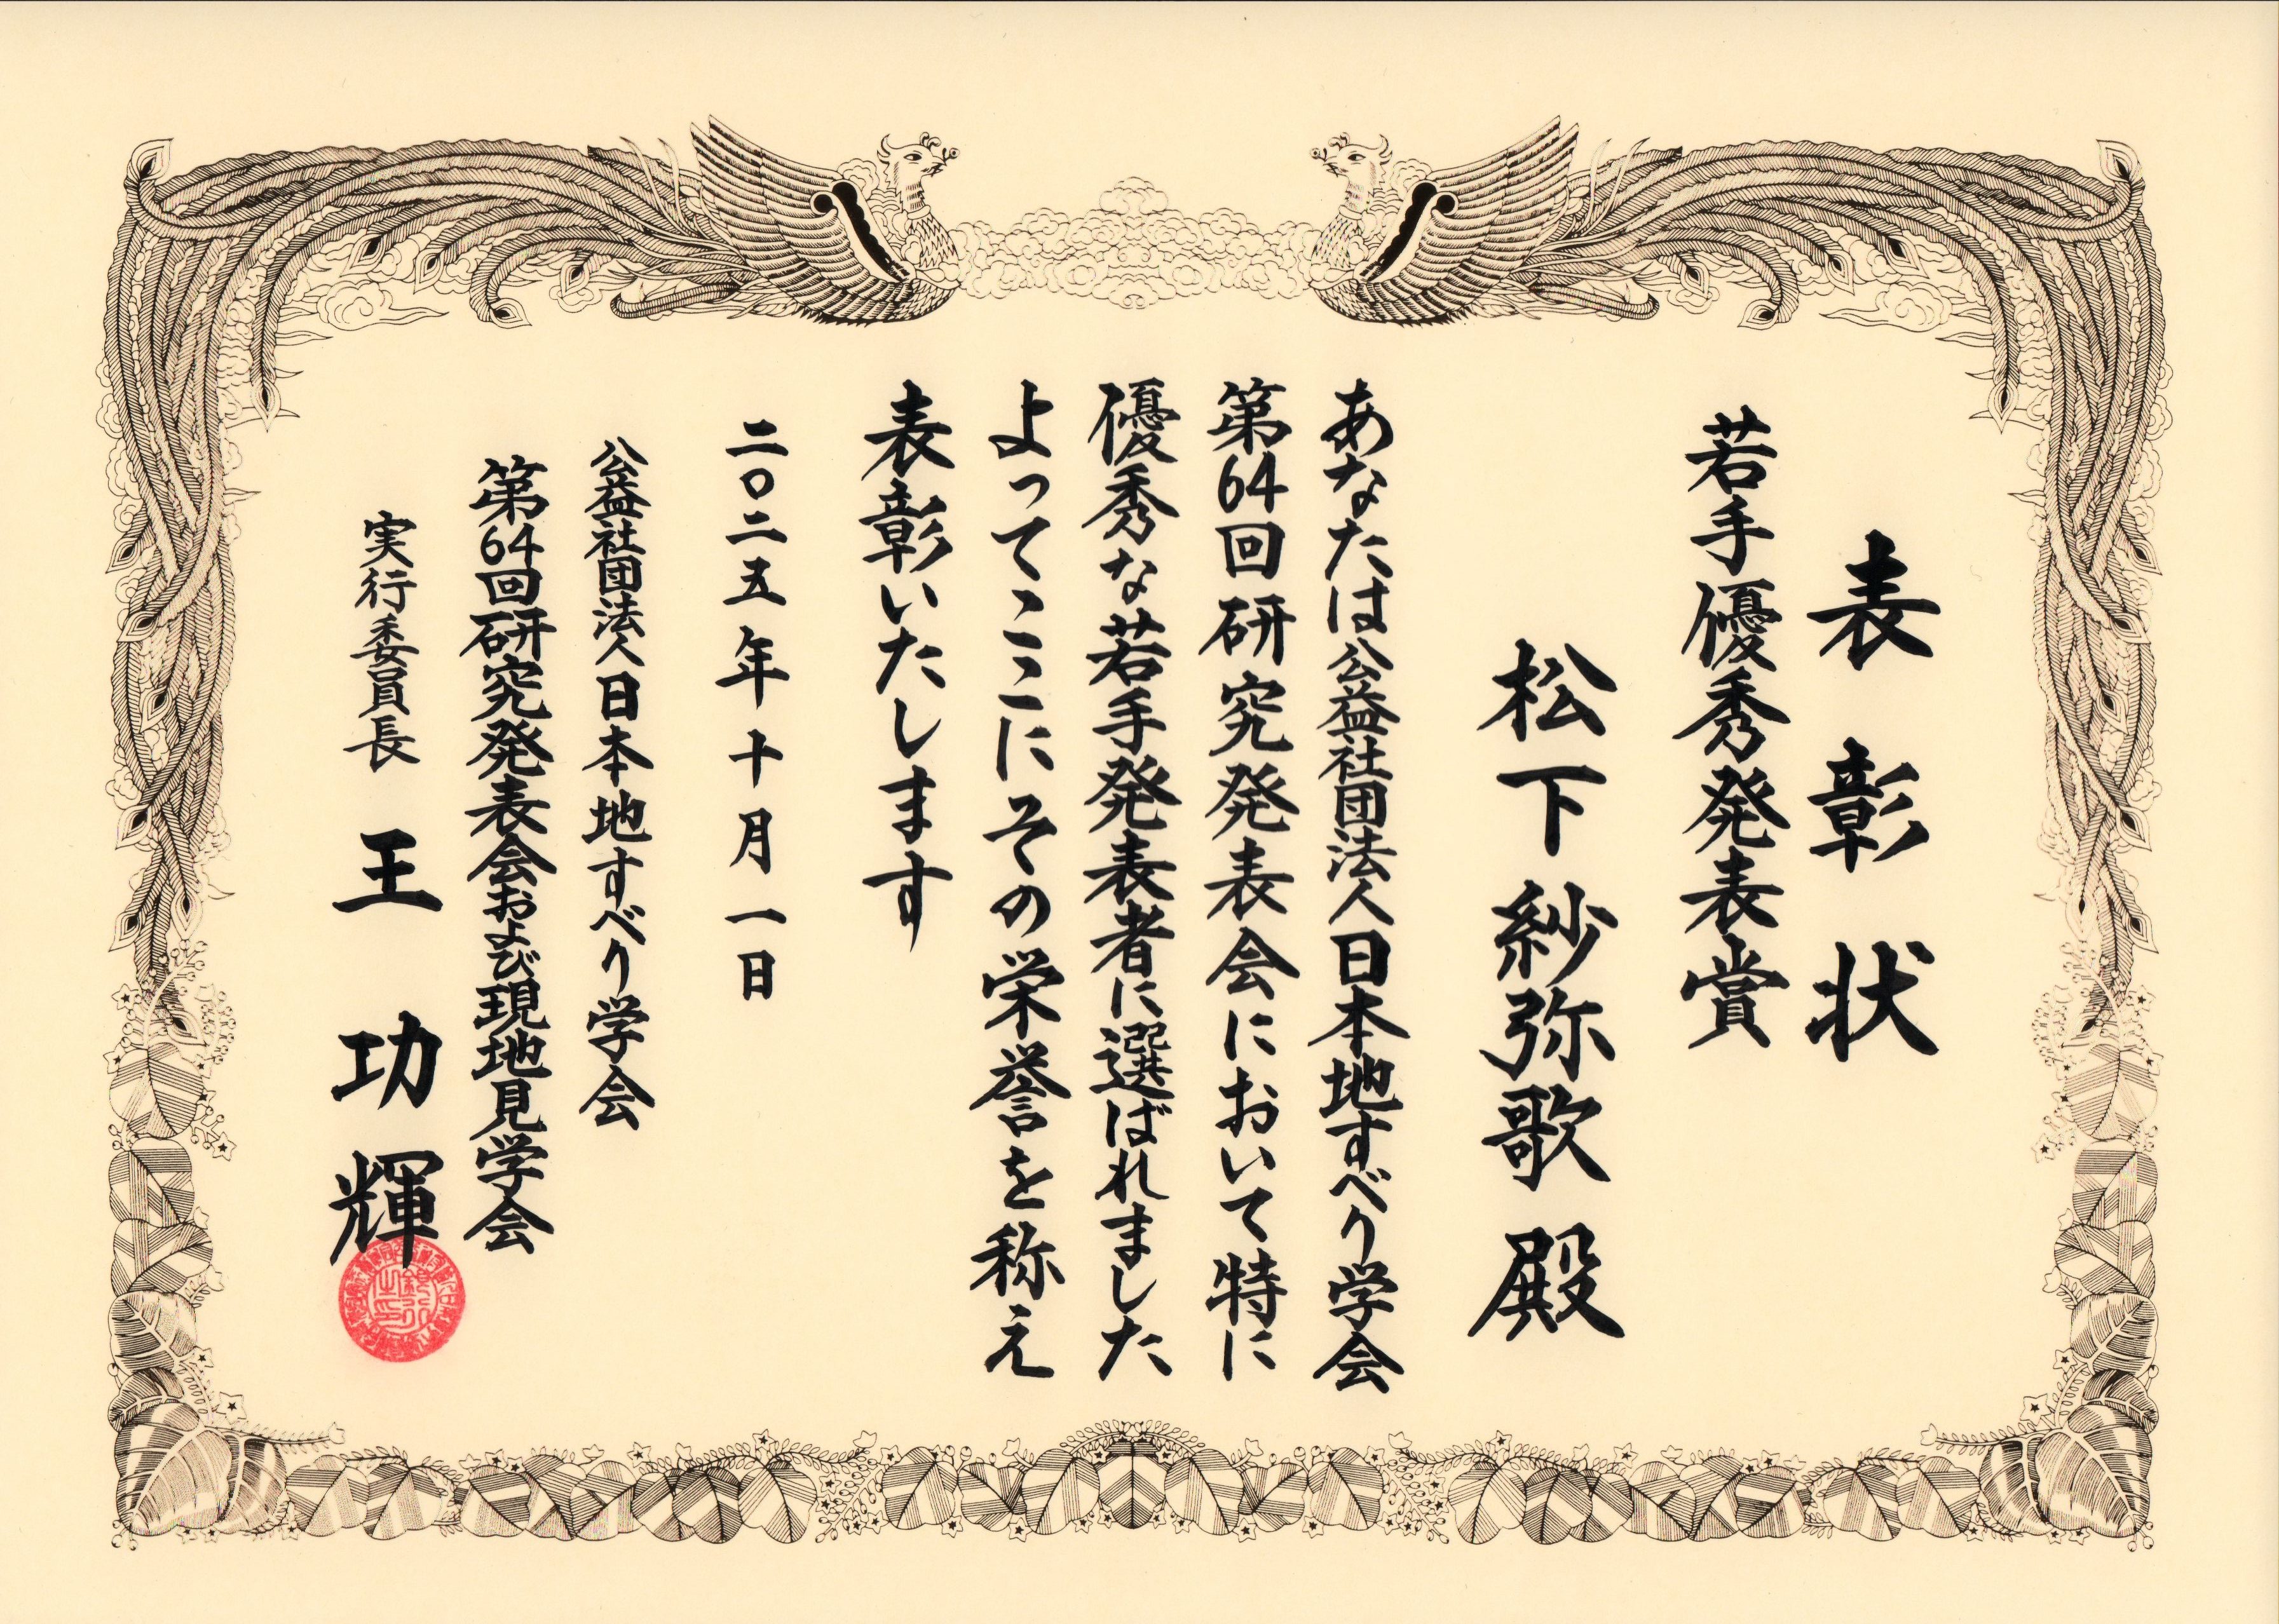 表彰状
若手優秀発表賞
松下紗弥歌殿
あなたは公益社団法人日本地すべり学会
第64回研究発表会において特に
優秀な若手発表者に選ばれました
よってここにその栄誉を称え
表彰いたします
二〇二五年十月一日
公益社団法人日本地すべり学会
第64回研究発表会および現地見学会
実行委員長 王功輝